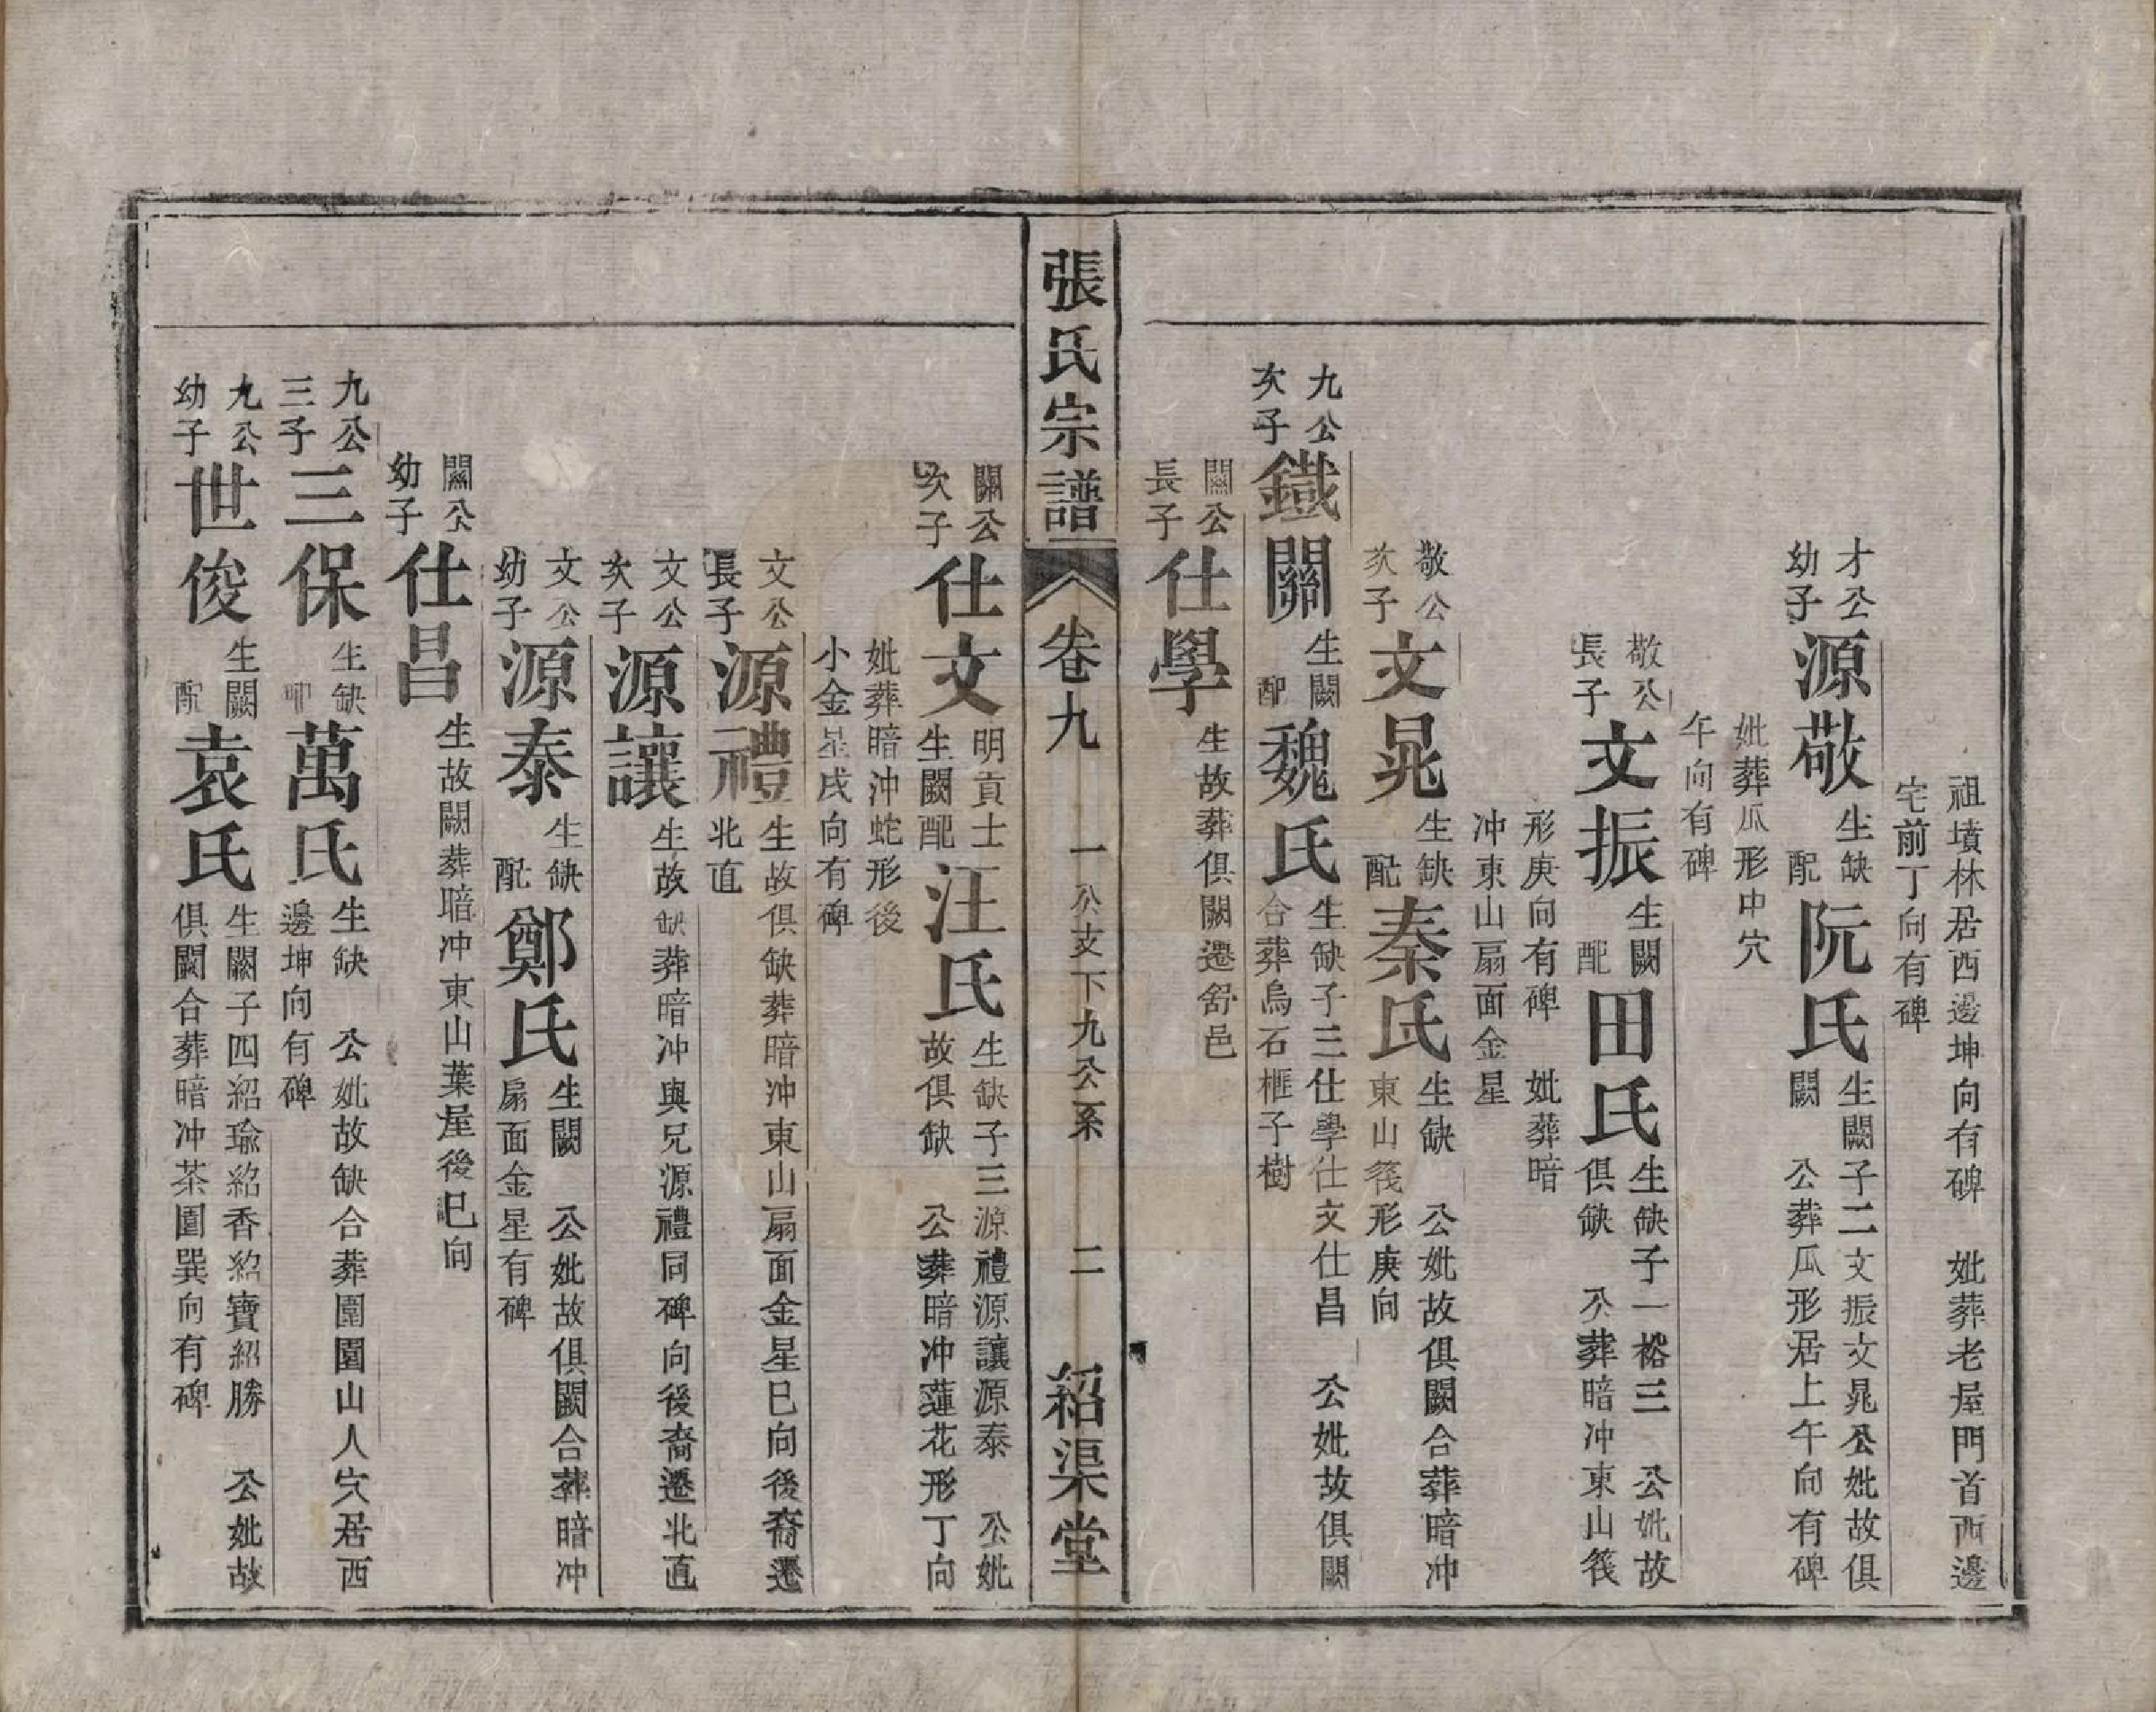 祖墳林居西邊坤向有碑　妣葬老屋門首西邊
宅前丁向有碑
才公
幼子
源敬
生缺
配
阮氏
生闕子二文振文晁公妣故俱
闕　公葬瓜形居上午向有碑
妣葬瓜形中穴
午向有碑
敬公
長子
文振
生闕
配
田氏
生缺子一裕三　公妣故
俱缺　公葬暗冲東山筏
形庚向有碑　妣葬暗
冲東山扇面金星
敬公
次子
文晁
生缺
配
秦氏
生缺　公妣故俱闕合葬暗冲
東山筏形庚向
九公
次子
鐡關
生闕
配
魏氏
生缺子三仕學仕文仕昌　公妣故俱闕
合葬烏石榧子樹
關公
長子
仕學
生故葬俱闕遷舒邑
張氏宗譜
卷九
一公支下九公系
二
紹渠堂
關公
次子
仕文
明貢士
生闕配
汪氏
生缺子三源禮源讓源泰　公妣
故俱缺　公葬暗冲蓮花形丁向
妣葬暗沖蛇形後
小金星戌向有碑
文公
長子
源禮
生故俱缺葬暗冲東山扇面金星巳向後裔遷
北直
文公
次子
源讓
生故缺葬暗冲與兄源禮同碑向後裔遷北直
文公
幼子
源泰
生缺
配
鄭氏
生闕　公妣故俱闕合葬暗冲
扇面金星有碑
關公
幼子
仕昌
生故闕葬暗冲東山葉屋後巳向
九公
三子
三保
生缺
配
萬氏
生缺　公妣故缺合葬園園山人穴居西
邊坤向有碑
九公
幼子
世俊
生闕
配
袁氏
生闕子四紹瑜紹香紹寶紹勝　公妣故
俱闕合葬暗冲茶園巽向有碑